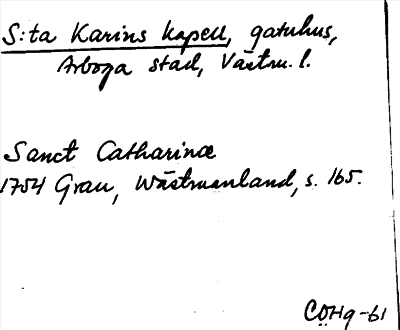 S:ta Karins kapell, gatuhus,
Arboga stad, Västm. l.
Sanct Catharinæ
1754 Grau, Wästmanland, s. 165.
CÖHg-61